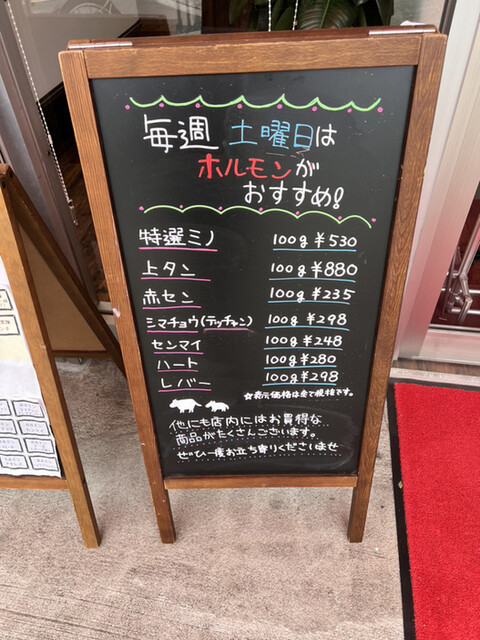 毎週 土曜日は
ホルモンが
おすすめ!
特選ミノ 100g ¥530
上タン 100g ¥880
赤セン 100g ¥235
シマチョウ(テッチャン) 100g ¥298
センマイ 100g ¥248
ハート 100g ¥280
レバー 100g ¥298
☆表示価格は全て税抜です。
他にも店内にはお買得な
商品がたくさんございます。
ぜひ一度お立ち寄りくださいませ